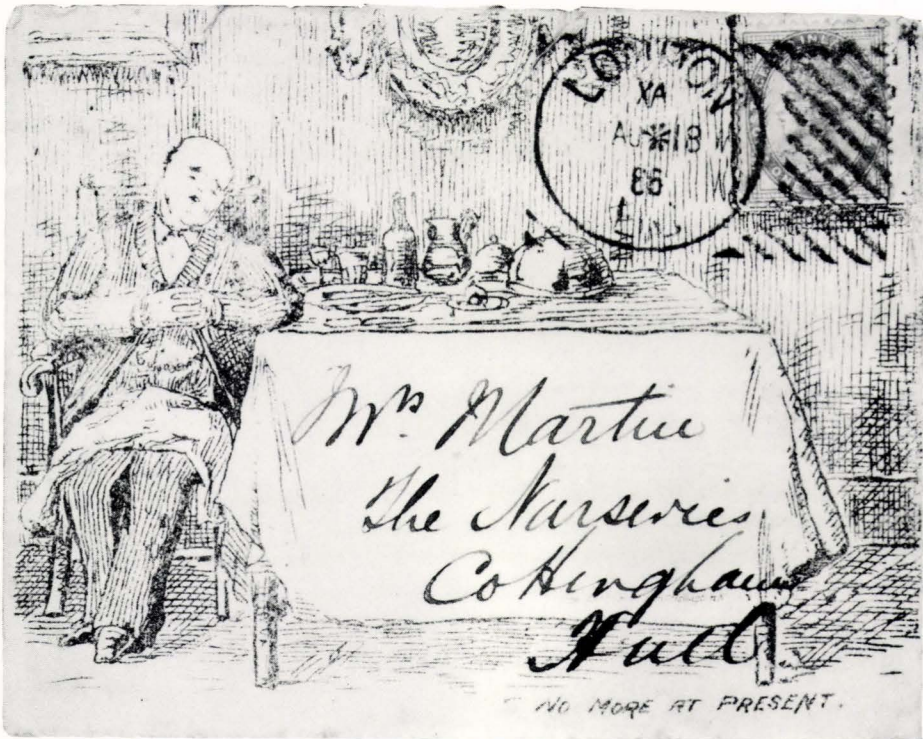 LONDON
XA
AU 18
86
Mrs. Martin
The Nurseries
Cottingham
Hull
NO MORE AT PRESENT.